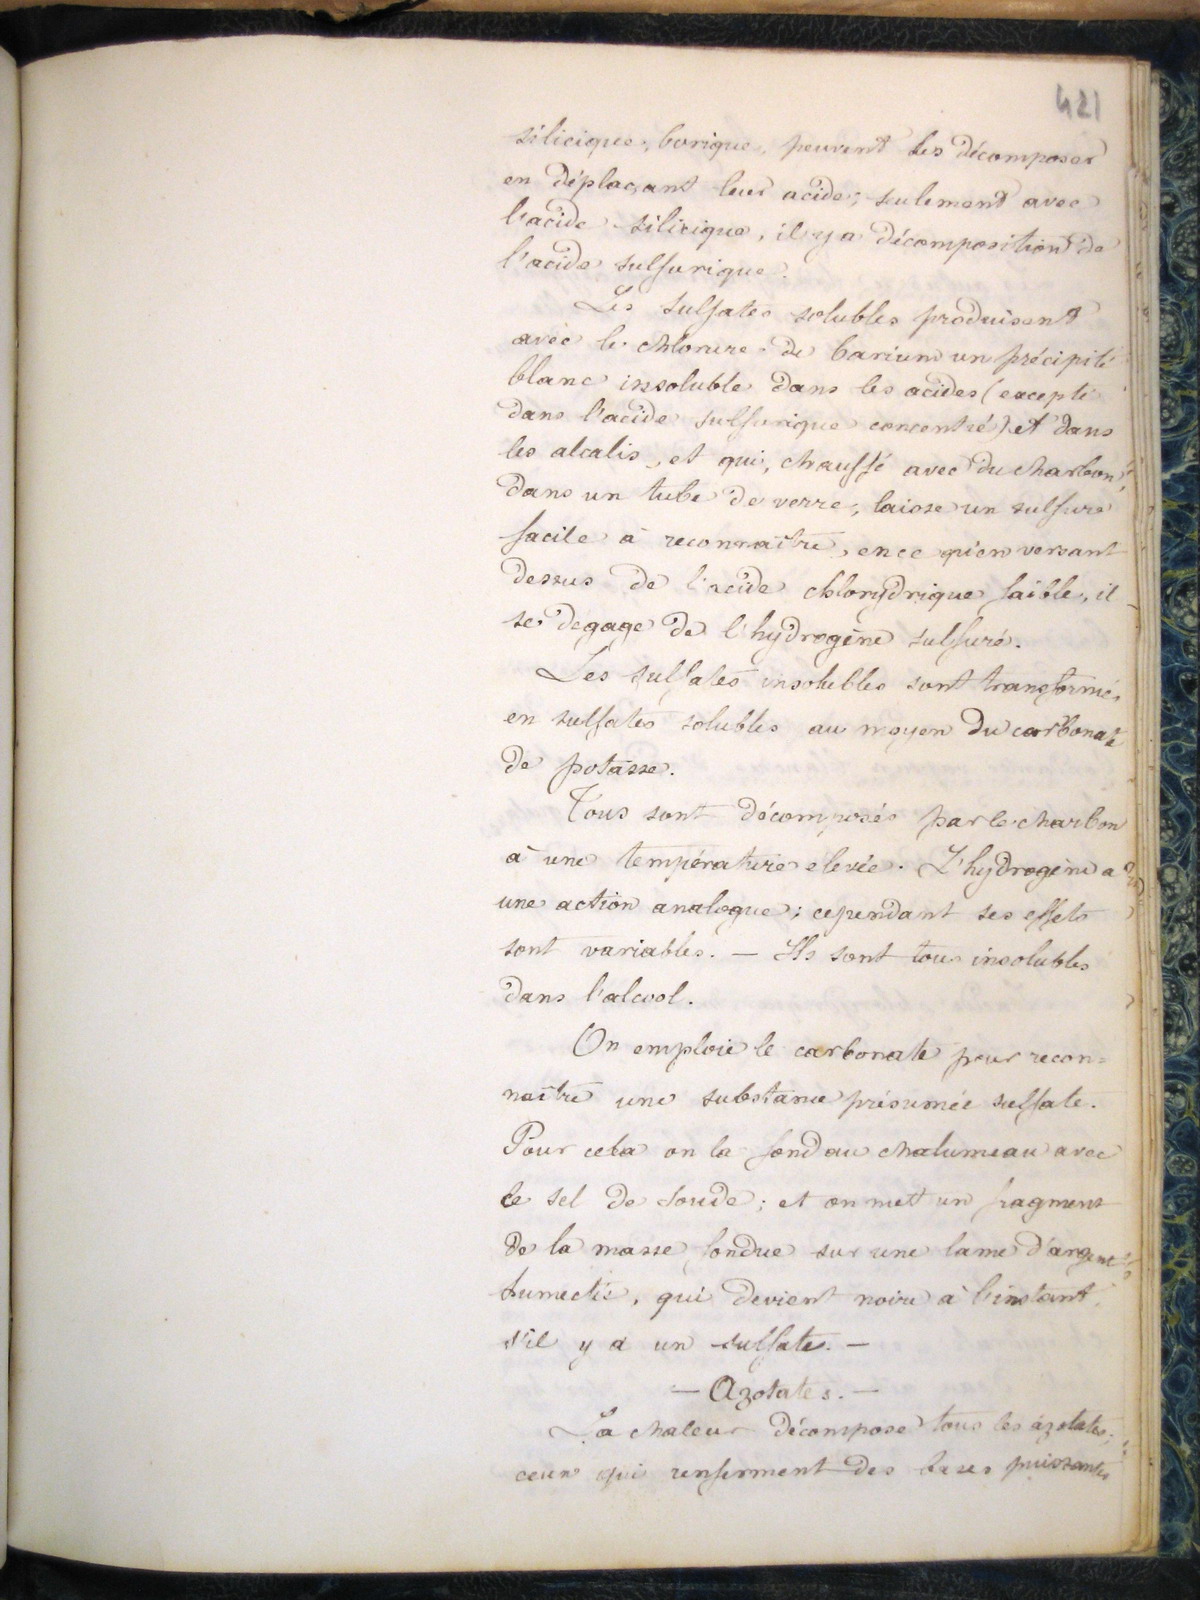 421
silicique, borique, peuvent les décomposer
en déplaçant leur acide; seulement avec
l'acide silicique, il y a décomposition de
l'acide sulfurique.
Les sulfates solubles produisent
avec le chlorure de barium un précipité
blanc insoluble dans les acides (excepté
dans l'acide sulfurique concentré) et dans
les alcalis, et qui, chauffé avec du charbon,
dans un tube de verre, laisse un sulfure
facile à reconnaître, en ce qu'en versant
dessus de l'acide chlorydrique faible, il
se dégage de l'hydrogène sulfuré.
Les sulfates insolubles sont transformés
en sulfates solubles au moyen du carbonate
de potasse.
Tous sont décomposés par le charbon
à une température elevée. L'hydrogène a
une action analogue; cependant ses effets
sont variables. — Ils sont tous insolubles
dans l'alcool.
On emploie le carbonate pour recon=
naître une substance présumée sulfate.
Pour cela on la fond au chalumeau avec
le sel de soude; et on mett un fragment
de la masse fondue sur une lame d'argent
humectée, qui devient noire à l'instant,
s'il y a un sulfate. —
— Azotates. —
La chaleur décompose tous les azotates;
ceux qui renferment des bases puissantes